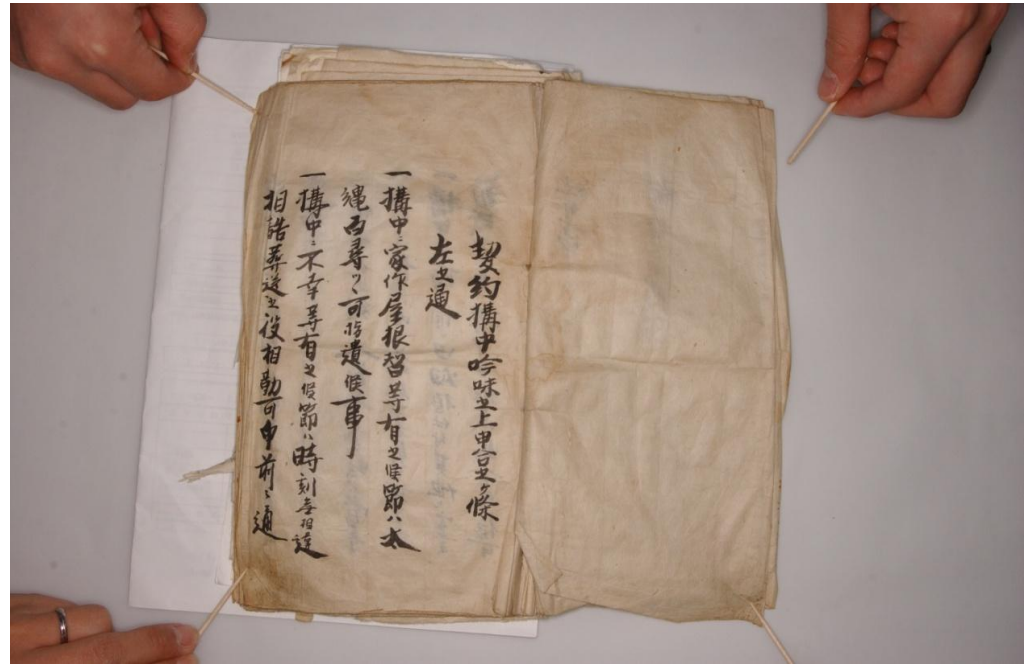 契約搆中吟味之上申合之ケ條
左之通
一搆中ニ家作屋根替等有之候節ハ太
縄百尋ツヽ可指遣候事
一搆中ニ不幸等有之候節ハ時刻無相違
相詰葬送之役相勤可申前々通